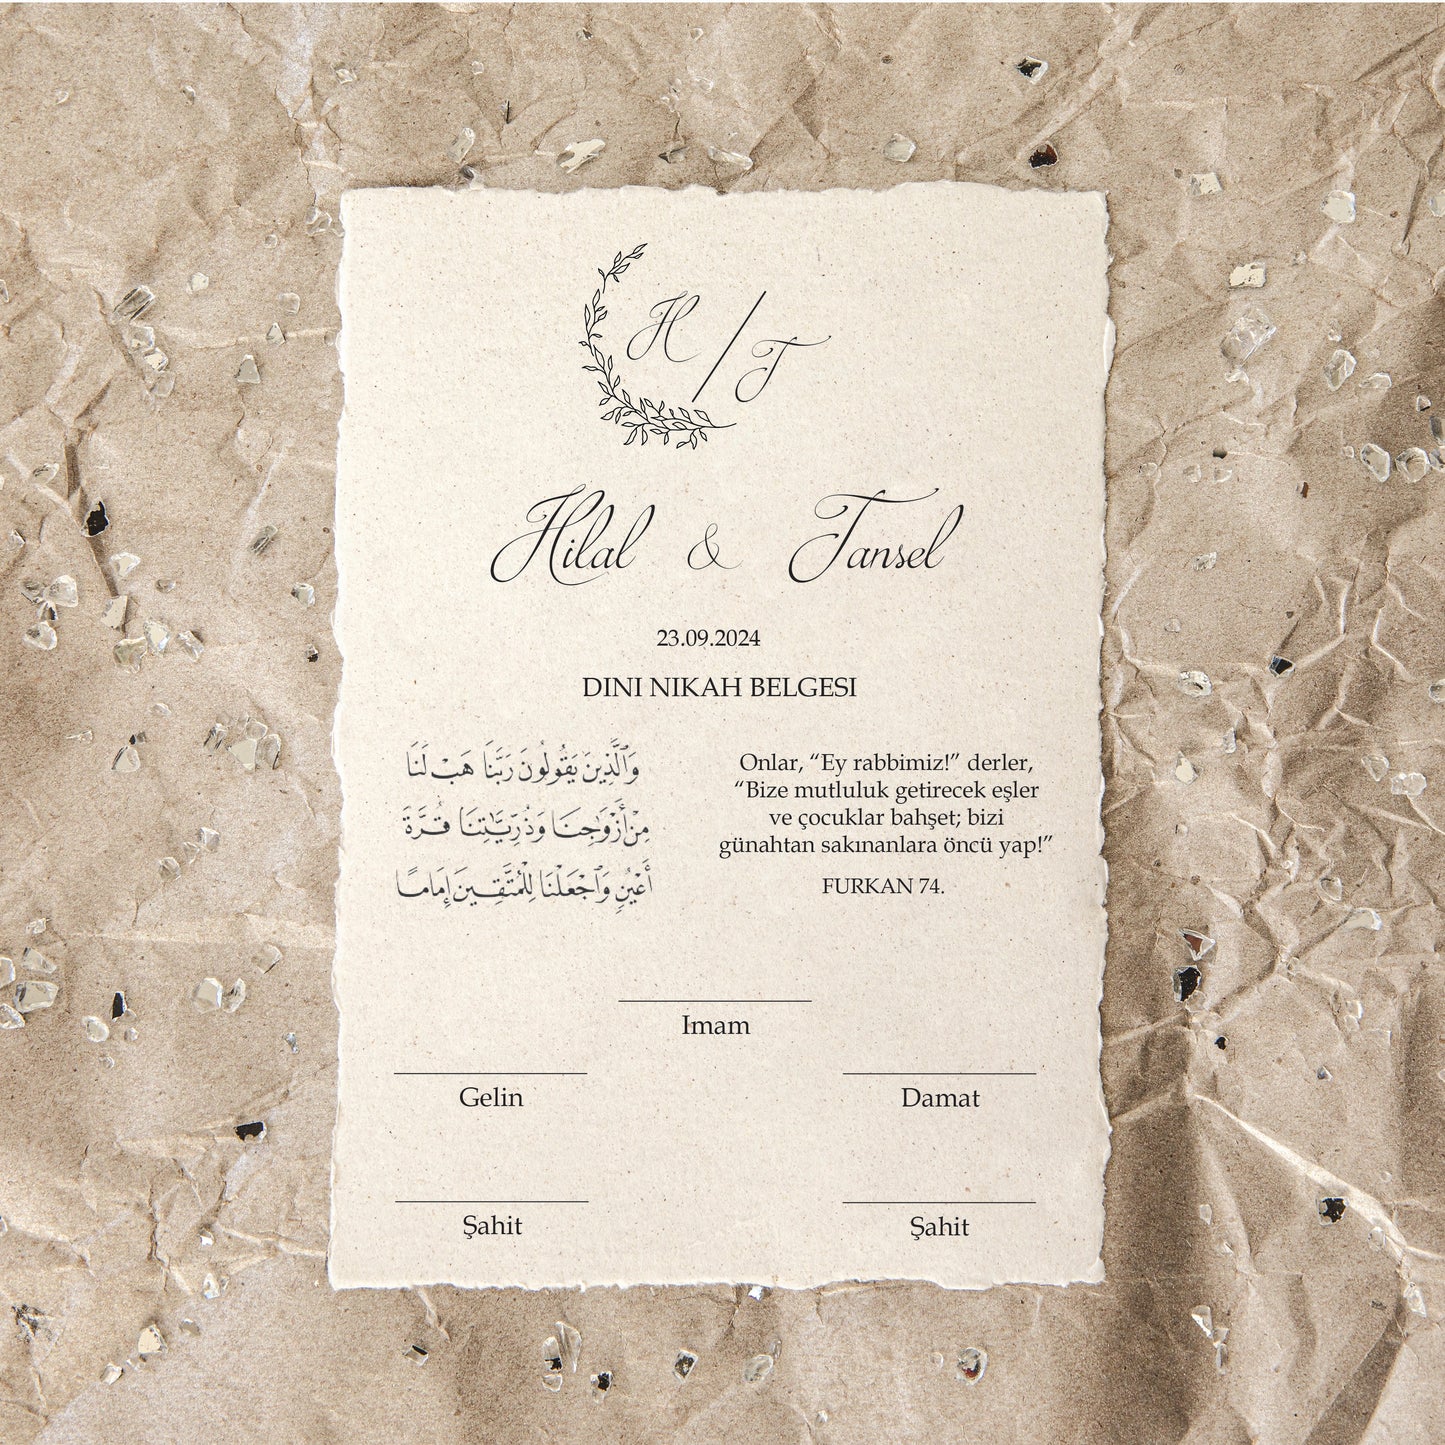 H / T
Hilal & Tansel
23.09.2024
DINI NIKAH BELGESI
وَٱلَّذِينَ يَقُولُونَ رَبَّنَا هَبْ لَنَا
مِنْ أَزْوَٰجِنَا وَذُرِّيَّـٰتِنَا قُرَّةَ
أَعْيُنٍ وَٱجْعَلْنَا لِلْمُتَّقِينَ إِمَامًا
Onlar, “Ey rabbimiz!” derler,
“Bize mutluluk getirecek eşler
ve çocuklar bahşet; bizi
günahtan sakınanlara öncü yap!”
FURKAN 74.
Imam
Gelin
Damat
Şahit
Şahit